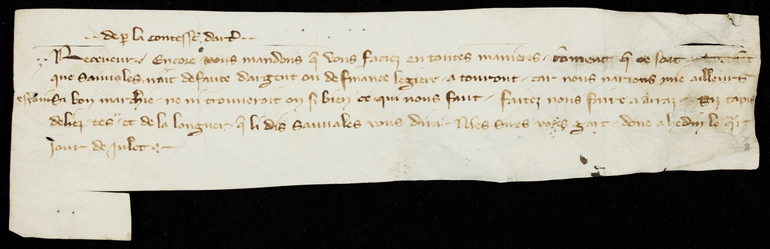 de p la contesse dart
Receveur Encore vous mandons q vous faciez en toutes manieres coment q ce soit
que Sauvales nait defaute dargent ou de finance legiere a tournai car nous narions mie ailleurs
si bon marchie ne ni trouveroit on si bien ce qui nous faut faites nous faire a arraz tapis
deliez tes et de la longueur q li dis Sauvales vous dira Nres sires vous gart done a hedin le
jour de julet